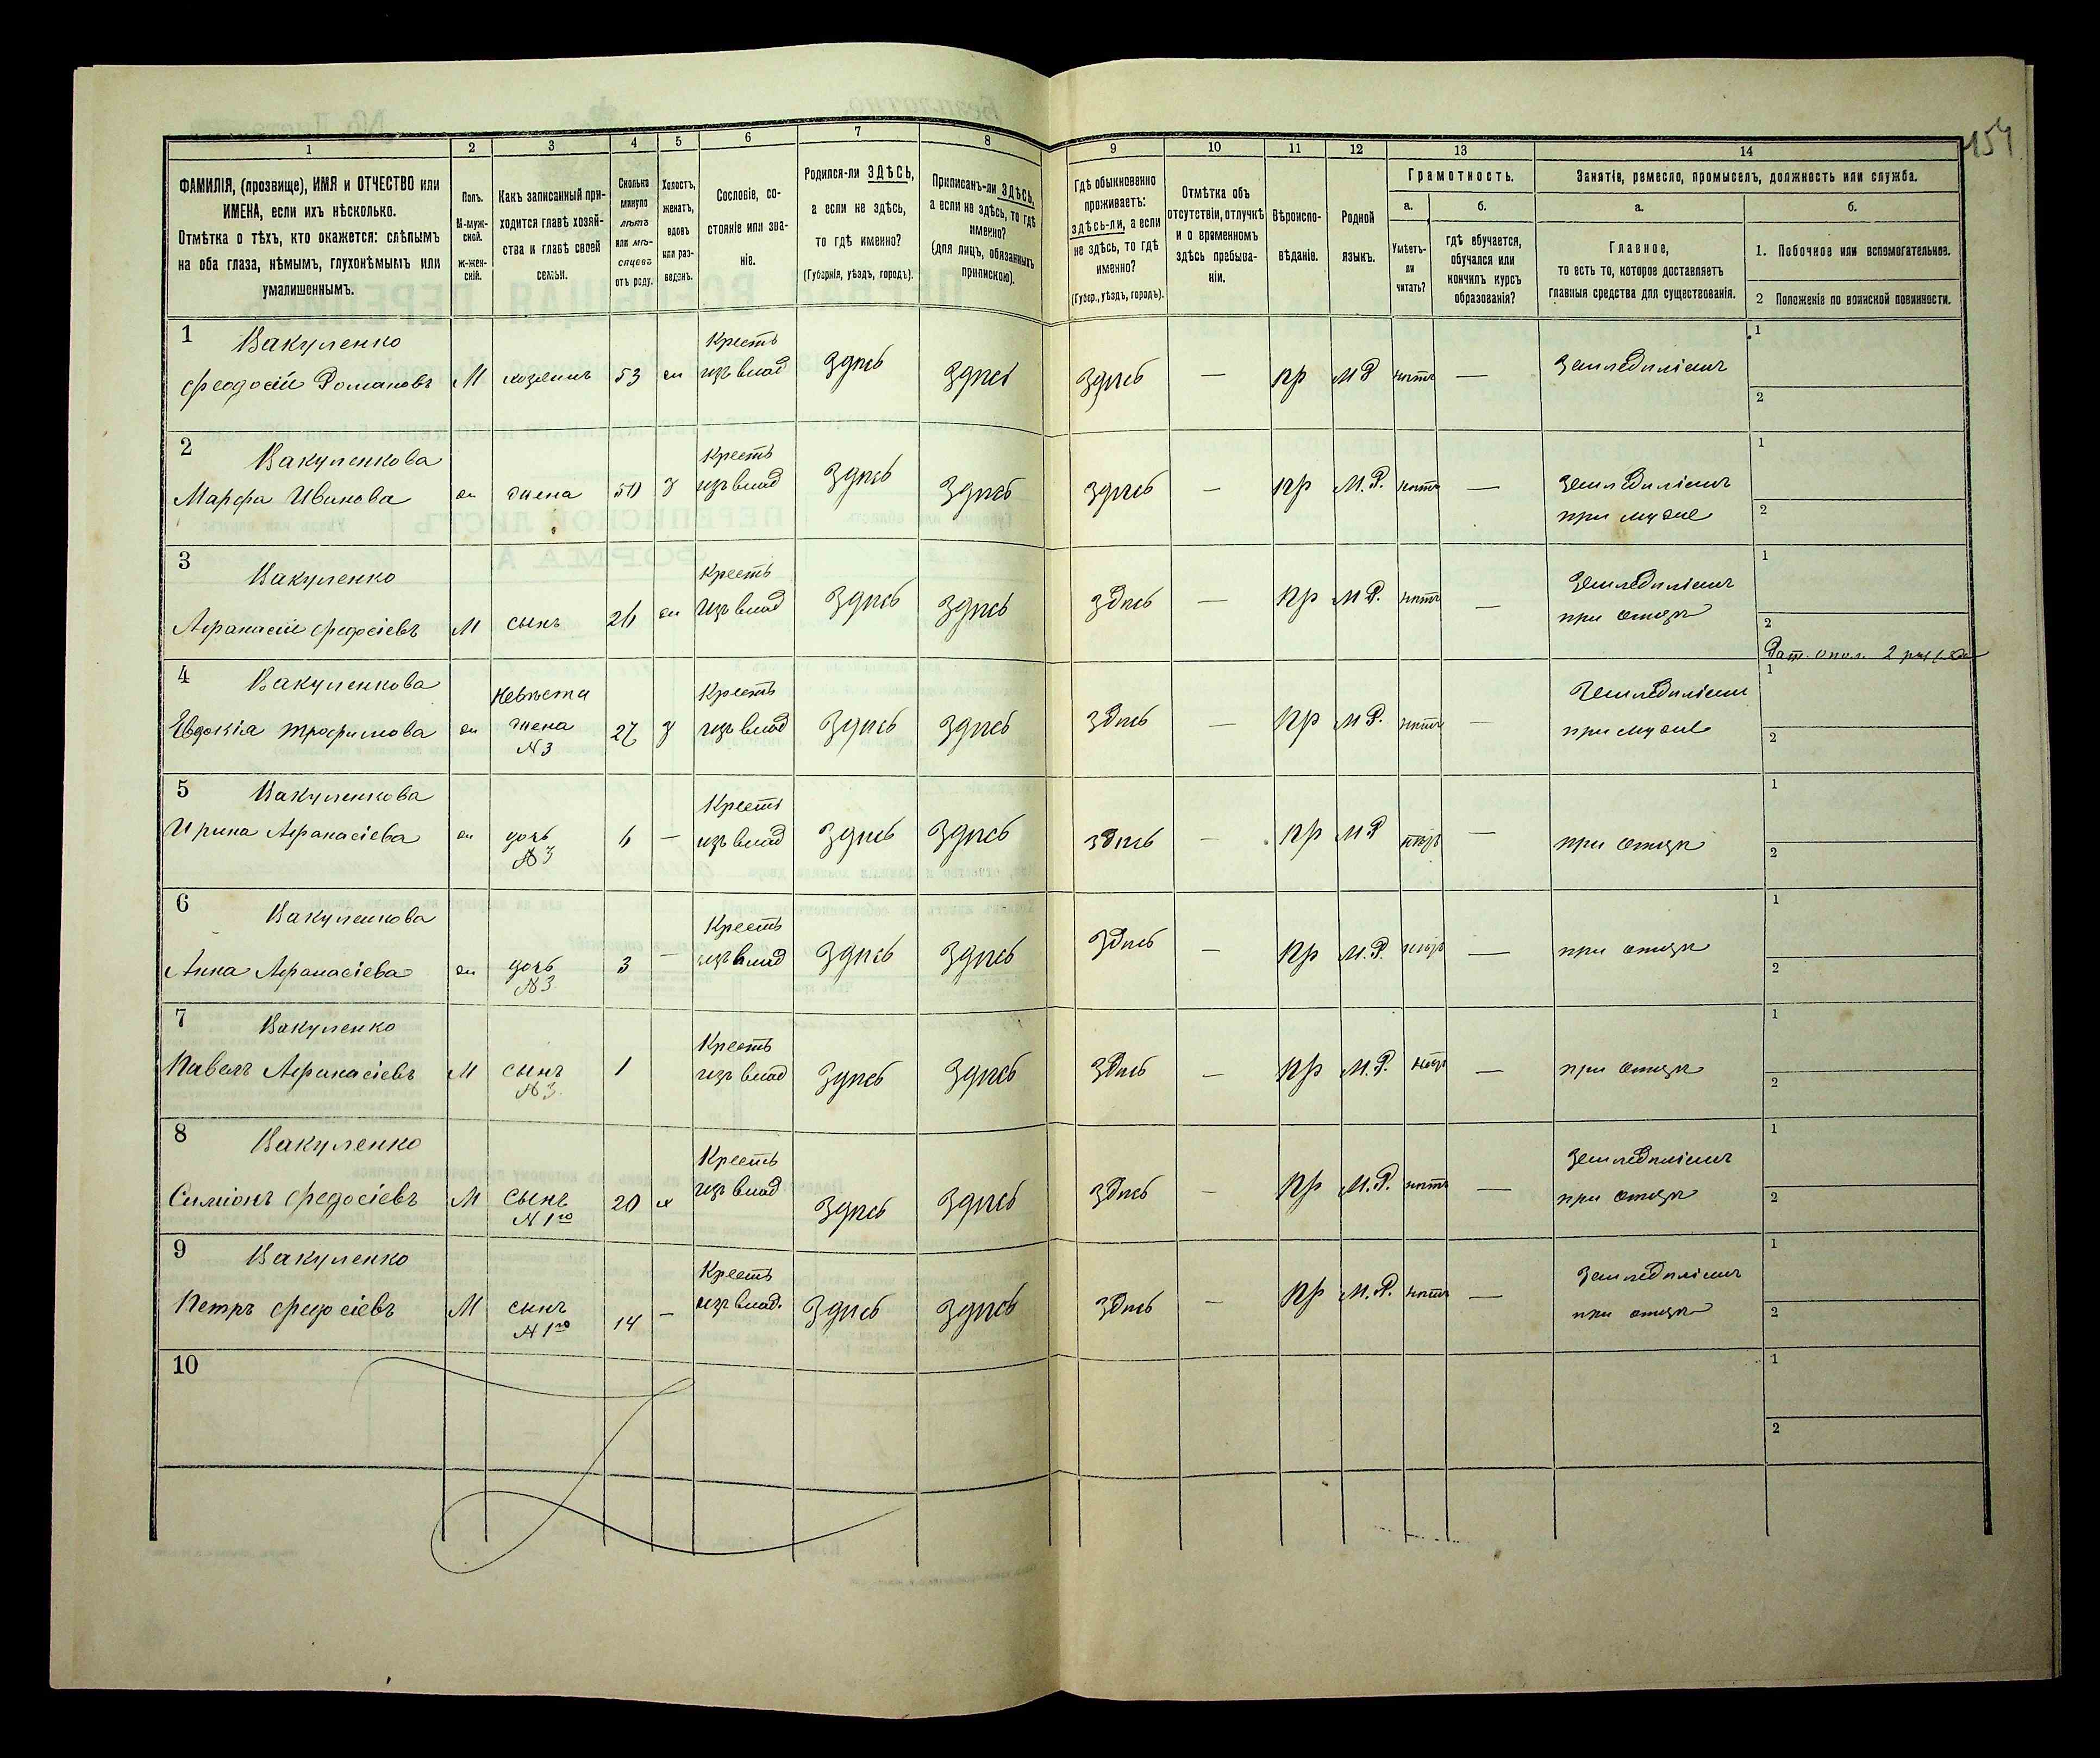 154
1 2 3 4 5 6 7 8 9 10 11 12 13 14
ФАМИЛІЯ, (прозвище), ИМЯ и ОТЧЕСТВО или
ИМЕНА, если ихъ нѣсколько.
Отмѣтка о тѣхъ, кто окажется: слѣпымъ
на оба глаза, нѣмымъ, глухонѣмымъ или
умалишеннымъ.
Полъ.
М-муж-
ской.
ж-жен-
скій.
Какъ записанный при-
ходится главѣ хозяй-
ства и главѣ своей
семьи.
Сколько
минуло
лѣтъ
или мѣ-
сяцевъ
отъ роду.
Холостъ,
женатъ,
вдовъ
или раз-
веденъ.
Сословіе, со-
стояніе или зва-
ніе.
Родился-ли ЗДѢСЬ,
а если не здѣсь,
то гдѣ именно?
(Губернія, уѣздъ, городъ).
Приписанъ-ли ЗДѢСЬ,
а если не здѣсь, то гдѣ
именно?
(для лицъ, обязанныхъ
припискою).
Гдѣ обыкновенно
проживаетъ:
здѣсь-ли, а если
не здѣсь, то гдѣ
именно?
(Губер., уѣздъ, городъ).
Отмѣтка объ
отсутствіи, отлучкѣ
и о временномъ
здѣсь пребыва-
ніи.
Вѣроиспо-
вѣданіе.
Родной
языкъ.
Грамотность.
а.
Умѣетъ-
ли
читать?
б.
гдѣ обучается,
обучался или
кончилъ курсъ
образованія?
Занятіе, ремесло, промыселъ, должность или служба.
а.
Главное,
то есть то, которое доставляетъ
главныя средства для существованія.
б.
1. Побочное или вспомогательное.
2 Положеніе по воинской повинности.
1 Вакуленко Крестъ 1
Феодосій Романовъ М хозяинъ 53 ж изъ влад Здѣсь Здѣсь Здѣсь — пр М Р нѣтъ — Земледѣліемъ
2
2 Вакуленкова Крестъ 1
Марфа Иванова ж жена 50 з изъ влад Здѣсь Здѣсь Здѣсь — пр М.Р. нѣтъ — Земледѣліемъ
при мужѣ 2
3 Вакуленко Крестъ 1
Афанасій Федосіевъ М сынъ 26 ж изъ влад Здѣсь Здѣсь Здѣсь — пр М Р. нѣтъ — Земледѣліемъ
при отцѣ 2
Рат. опол. 2 разряда
4 Вакуленкова Невѣста Крестъ 1
Евдокія Трофимова ж жена 27 з изъ влад Здѣсь Здѣсь Здѣсь — пр М Р. нѣтъ — Земледѣліемъ
N 3 при мужѣ 2
5 Вакуленкова Крестъ 1
Ирина Афанасіева ж дочь 6 — изъ влад Здѣсь Здѣсь Здѣсь — пр М Р нѣтъ — при отцѣ
N 3 2
6 Вакуленкова Крестъ 1
Анна Афанасіева ж дочь 3 — изъ влад Здѣсь Здѣсь Здѣсь — пр М.Р. нѣтъ — при отцѣ
N 3 2
7 Вакуленко Крестъ 1
Павелъ Афанасіевъ М сынъ 1 изъ влад Здѣсь Здѣсь Здѣсь — пр М.Р. нѣтъ — при отцѣ
N 3. 2
8 Вакуленко Крестъ 1
Симіонъ Федосіевъ М сынъ 20 х изъ влад Здѣсь Здѣсь Здѣсь — пр М.Р. нѣтъ — Земледѣліемъ
N 1го при отцѣ 2
9 Вакуленко Крестъ 1
Петръ Федосіевъ М сынъ 14 — изъ влад. Здѣсь Здѣсь Здѣсь — пр М.Р. нѣтъ — Земледѣліемъ
N 1го при отцѣ 2
10 1
2